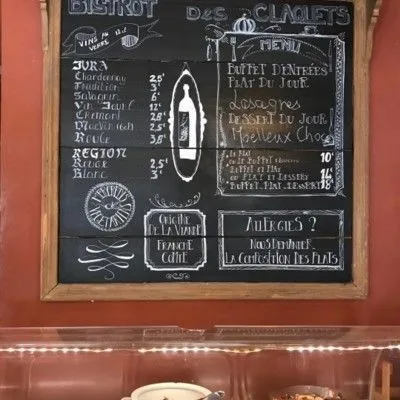 BISTROT DES CLAQUETS
VINS AU
VERRE
JURA
Chardonnay 2,5€
Tradition 3€
Savagnin 6€
Vin Jaune 12€
Crémant 2,8€
Macvin 16cl 2,5€
Rouge 3,5€
REGION
Rouge 2,5€
Blanc 3€
MENU
BUFFET D'ENTRÉES
PLAT DU JOUR
Lasagnes
DESSERT DU JOUR
Moelleux Choco
LE PLAT
OU LE BUFFET 10€
BUFFET ET PLAT
OU PLAT ET DESSERT 14€
BUFFET-PLAT-DESSERT 18€
ASSIETTES
VÉGÉTARIENNES
ORIGINE
DE LA VIANDE
FRANCHE
COMTÉ
ALLERGIES ?
NOUS DEMANDER
LA COMPOSITION DES PLATS